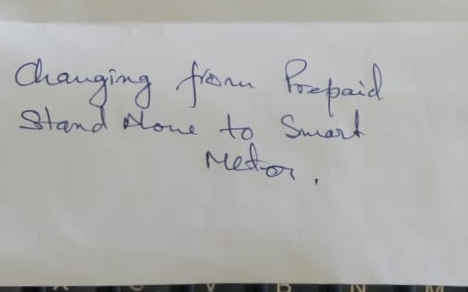 Changing from Prepaid
Stand Alone to Smart
Meter.